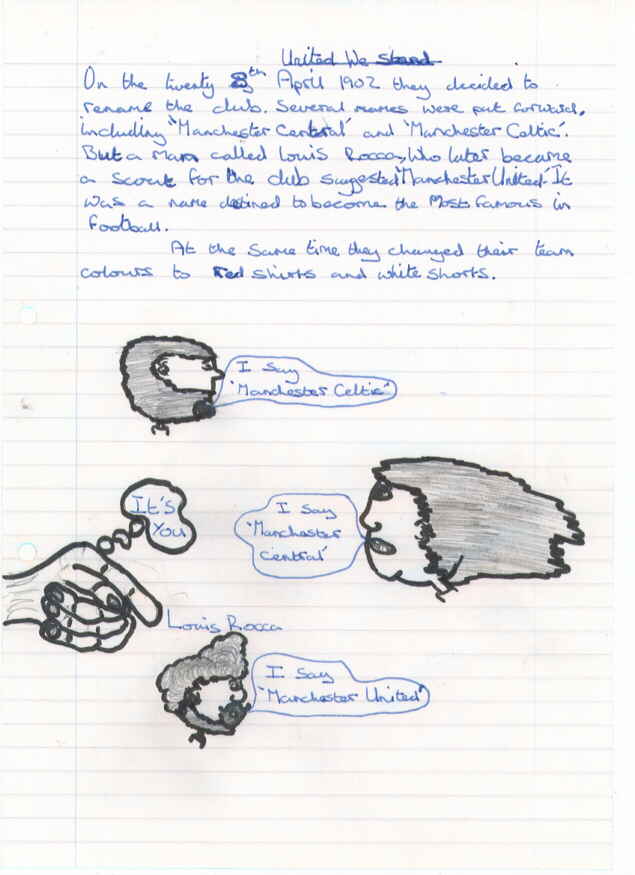 United We Stand
On the twenty 8th April 1902 they decided to
rename the club. Several names were put forward,
including 'Manchester Central' and 'Manchester Celtic'.
But a man called Louis Rocca, Who later became
a Scout for the club suggested 'Manchester United'. It
was a name destined to become the Most famous in
football.
At the same time they changed their team
colours to red shirts and white shorts.
I Say
'Manchester Celtic'
It's
You
I Say
'Manchester
Central'
Louis Rocca
I Say
'Manchester United'